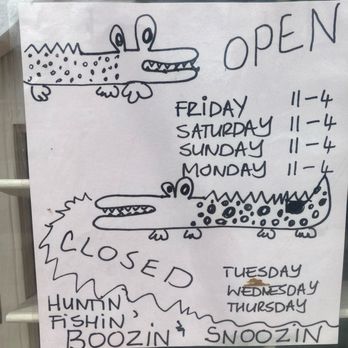 OPEN
FRIDAY 11-4
SATURDAY 11-4
SUNDAY 11-4
MONDAY 11-4
CLOSED
TUESDAY
WEDNESDAY
THURSDAY
HUNTIN'
FISHIN'
BOOZIN' & SNOOZIN